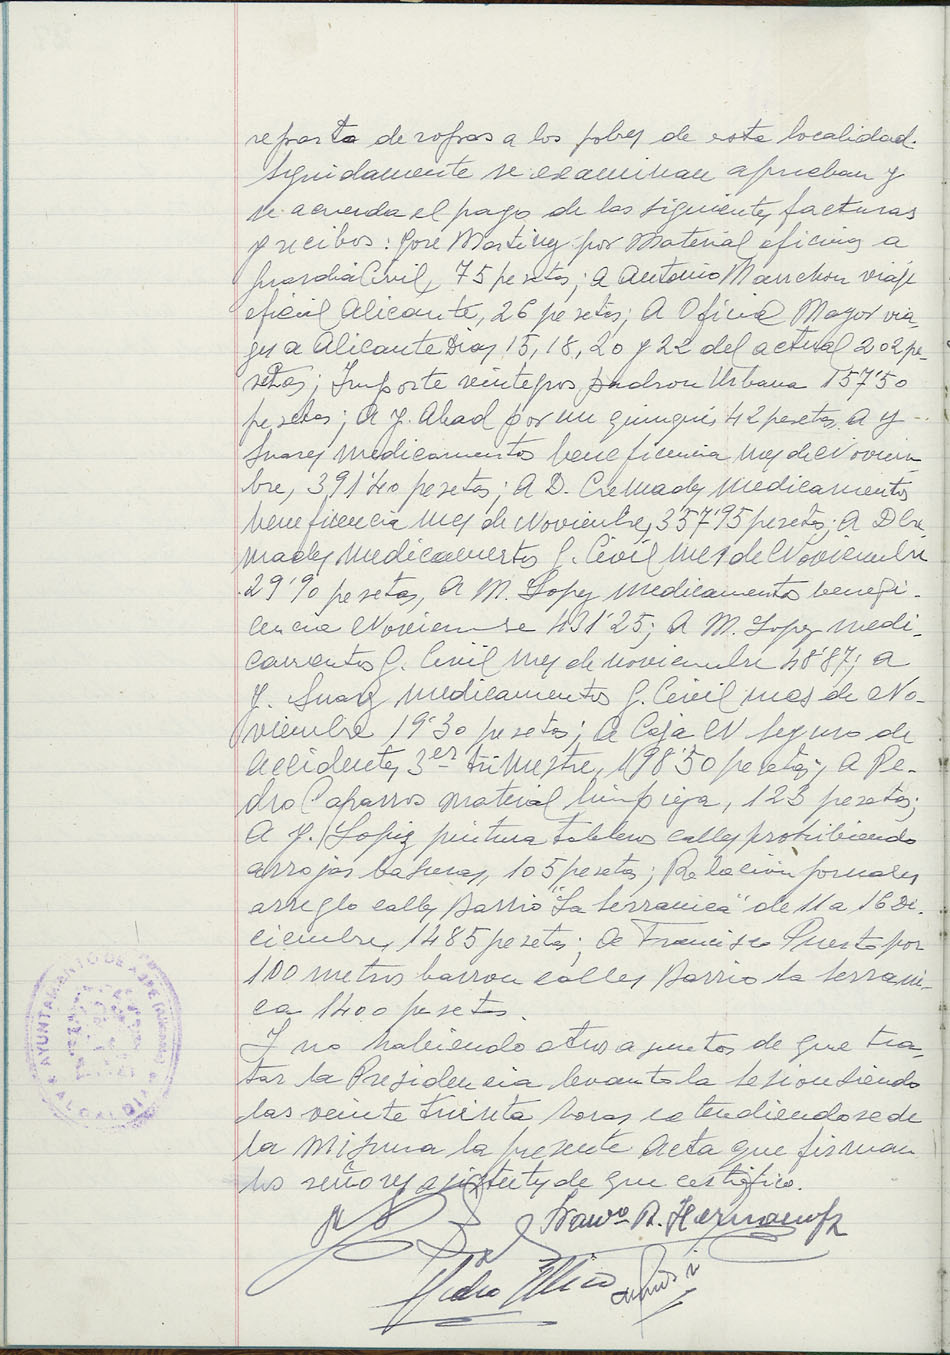 reparto de ropas a los pobres de esta localidad.
Seguidamente se examinan aprueban y
se acuerda el pago de las siguientes facturas
y recibos: José Martinez por Material oficinas a
guardia Civil, 75 pesetas; a Antonio Manchon viaje
oficial Alicante, 26 pesetas; A Oficial Mayor via-
ges a Alicante Dias 15, 18, 20 y 22 del actual 202 pe-
setas; Importe reintegros padron Urbana 157'50
pesetas; A J. Abad por un quinqué 42 pesetas. A J
Suarez medicamentos beneficencia mes de Noviem-
bre, 391'40 pesetas; A D. Cremades medicamentos
beneficencia mes de Noviembre, 357'95 pesetas; A D Cre-
mades Medicamentos G. Civil mes de Noviembre
29'90 pesetas, A M. Lopez medicamentos benefi-
cencia Noviembre 431'25; A M. Lopez medi-
camentos G. Civil mes de noviembre 48'87; a
J. Suarez medicamentos G. Civil mes de No-
viembre 19'30 pesetas; A Caja N Seguro de
Accidentes 3er trimestre, 198'50 pesetas; A Pe-
dro Caparros material limpieza, 123 pesetas;
A J. Lopez pintura tableros calles prohibiendo
arrojar basuras, 105 pesetas; Relación jornales
arreglo calles Barrio "La Serranica" de 11 a 16 Di-
ciembre, 1485 pesetas; a Francisco Puerto por
100 metros barron calles Barrio la Serrani-
ca 1400 pesetas.
Y no habiendo otros asuntos de que tra-
tar la Presidencia levanto la sesion siendo
las veinte treinta horas extendiendose de
la misma la presente Acta que firman
los señores asistentes de que certifico.
AYUNTAMIENTO DE ASPE (Alicante)
ALCALDIA
Pedro